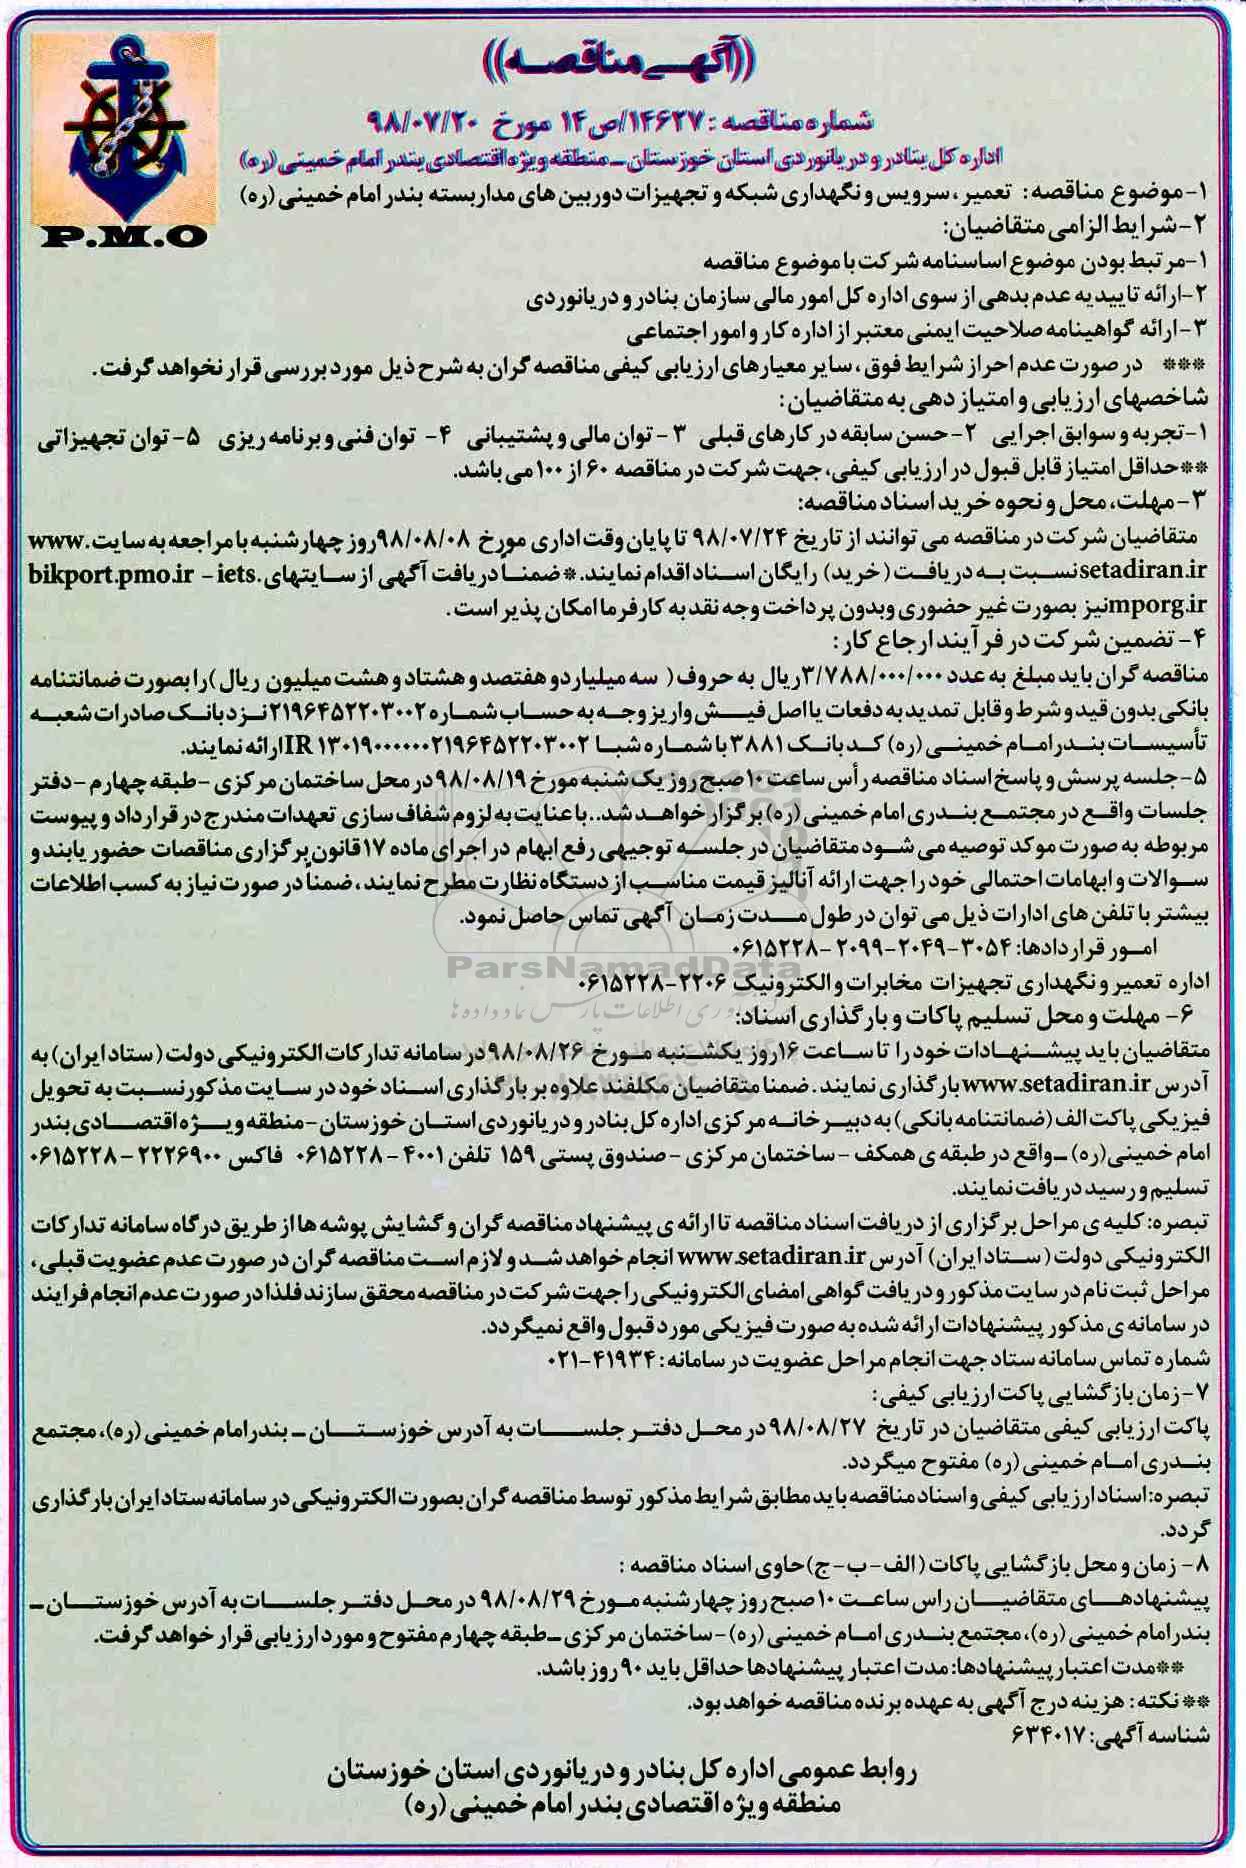 ((آگهی مناقصه))
شماره مناقصه: ۱۴۶۲۷/ص۱۴ مورخ ۹۸/۰۷/۲۰
اداره کل بنادر و دریانوردی استان خوزستان ـ منطقه ویژه اقتصادی بندر امام خمینی (ره)
P.M.O
۱-موضوع مناقصه: تعمیر، سرویس و نگهداری شبکه و تجهیزات دوربین های مداربسته بندر امام خمینی (ره)
۲-شرایط الزامی متقاضیان:
۱-مرتبط بودن موضوع اساسنامه شرکت با موضوع مناقصه
۲-ارائه تاییدیه عدم بدهی از سوی اداره کل امور مالی سازمان بنادر و دریانوردی
۳-ارائه گواهینامه صلاحیت ایمنی معتبر از اداره کار و امور اجتماعی
*** در صورت عدم احراز شرایط فوق، سایر معیارهای ارزیابی کیفی مناقصه گران به شرح ذیل مورد بررسی قرار نخواهد گرفت.
شاخصهای ارزیابی و امتیاز دهی به متقاضیان:
۱-تجربه و سوابق اجرایی ۲-حسن سابقه در کارهای قبلی ۳- توان مالی و پشتیبانی ۴- توان فنی و برنامه ریزی ۵- توان تجهیزاتی
**حداقل امتیاز قابل قبول در ارزیابی کیفی، جهت شرکت در مناقصه ۶۰ از ۱۰۰ می باشد.
۳-مهلت، محل و نحوه خرید اسناد مناقصه:
متقاضیان شرکت در مناقصه می توانند از تاریخ ۹۸/۰۷/۲۴ تا پایان وقت اداری مورخ ۹۸/۰۸/۰۸روز چهارشنبه با مراجعه به سایت www.
setadiran.ir نسبت به دریافت (خرید) رایگان اسناد اقدام نمایند.*ضمناً دریافت آگهی از سایتهای bikport.pmo.ir - iets.
mporg.ir نیز بصورت غیر حضوری وبدون پرداخت وجه نقد به کارفرما امکان پذیر است.
۴- تضمین شرکت در فرآیند ارجاع کار:
مناقصه گران باید مبلغ به عدد ۳/۷۸۸/۰۰۰/۰۰۰ریال به حروف( سه میلیارد و هفتصد و هشتاد و هشت میلیون ریال )را بصورت ضمانتنامه
بانکی بدون قید و شرط و قابل تمدید به دفعات یا اصل فیش واریز وجه به حساب شماره ۲۱۹۶۴۵۲۲۰۳۰۰۲ نزد بانک صادرات شعبه
تأسیسات بندر امام خمینی (ره) کد بانک ۳۸۸۱ با شماره شبا IR ۱۳۰۱۹۰۰۰۰۰۰۰۲۱۹۶۴۵۲۲۰۳۰۰۲ارائه نمایند.
۵-جلسه پرسش و پاسخ اسناد مناقصه رأس ساعت ۱۰صبح روز یک شنبه مورخ ۹۸/۰۸/۱۹در محل ساختمان مرکزی -طبقه چهارم -دفتر
جلسات واقع در مجتمع بندری امام خمینی (ره) برگزار خواهد شد..با عنایت به لزوم شفاف سازی تعهدات مندرج در قرارداد و پیوست
مربوطه به صورت موکد توصیه می شود متقاضیان در جلسه توجیهی رفع ابهام در اجرای ماده ۱۷قانون برگزاری مناقصات حضور یابند و
سوالات و ابهامات احتمالی خود را جهت ارائه آنالیز قیمت مناسب از دستگاه نظارت مطرح نمایند، ضمناً در صورت نیاز به کسب اطلاعات
بیشتر با تلفن های ادارات ذیل می توان در طول مدت زمان آگهی تماس حاصل نمود.
امور قراردادها: ۳۰۵۴-۲۰۴۹-۲۰۹۹ -۰۶۱۵۲۲۸
ParsNamadData
اداره تعمیر و نگهداری تجهیزات مخابرات و الکترونیک ۲۲۰۶-۰۶۱۵۲۲۸
۶- مهلت و محل تسلیم پاکات و بارگذاری اسناد:
متقاضیان باید پیشنهادات خود را تا ساعت ۱۶روز یکشنبه مورخ ۹۸/۰۸/۲۶در سامانه تدارکات الکترونیکی دولت (ستاد ایران) به
آدرس www.setadiran.ir بارگذاری نمایند. ضمنا متقاضیان مکلفند علاوه بر بارگذاری اسناد خود در سایت مذکور نسبت به تحویل
فیزیکی پاکت الف (ضمانتنامه بانکی) به دبیرخانه مرکزی اداره کل بنادر و دریانوردی استان خوزستان -منطقه ویژه اقتصادی بندر
امام خمینی(ره) ـ واقع در طبقه ی همکف -ساختمان مرکزی -صندوق پستی ۱۵۹ تلفن ۴۰۰۱ - ۰۶۱۵۲۲۸ فاکس ۲۲۲۶۹۰۰ - ۰۶۱۵۲۲۸
تسلیم و رسید دریافت نمایند.
تبصره: کلیه ی مراحل برگزاری از دریافت اسناد مناقصه تا ارائه ی پیشنهاد مناقصه گران و گشایش پوشه ها از طریق درگاه سامانه تدارکات
الکترونیکی دولت (ستاد ایران) آدرس www.setadiran.ir انجام خواهد شد و لازم است مناقصه گران در صورت عدم عضویت قبلی،
مراحل ثبت نام در سایت مذکور و دریافت گواهی امضای الکترونیکی را جهت شرکت در مناقصه محقق سازند فلذا در صورت عدم انجام فرایند
در سامانه ی مذکور پیشنهادات ارائه شده به صورت فیزیکی مورد قبول واقع نمیگردد.
شماره تماس سامانه ستاد جهت انجام مراحل عضویت در سامانه: ۴۱۹۳۴-۰۲۱
۷-زمان بازگشایی پاکت ارزیابی کیفی:
پاکت ارزیابی کیفی متقاضیان در تاریخ ۹۸/۰۸/۲۷ در محل دفتر جلسات به آدرس خوزستان ـ بندر امام خمینی (ره)، مجتمع
بندری امام خمینی (ره) مفتوح میگردد.
تبصره: اسناد ارزیابی کیفی و اسناد مناقصه باید مطابق شرایط مذکور توسط مناقصه گران بصورت الکترونیکی در سامانه ستاد ایران بارگذاری
گردد.
۸- زمان و محل بازگشایی پاکات (الف-ب-ج)حاوی اسناد مناقصه:
پیشنهادهای متقاضیان راس ساعت ۱۰صبح روز چهارشنبه مورخ ۹۸/۰۸/۲۹ در محل دفتر جلسات به آدرس خوزستان ـ
بندر امام خمینی (ره)، مجتمع بندری امام خمینی (ره) -ساختمان مرکزی ـ طبقه چهارم مفتوح و مورد ارزیابی قرار خواهد گرفت.
**مدت اعتبار پیشنهادها: مدت اعتبار پیشنهادها حداقل باید ۹۰ روز باشد.
**نکته: هزینه درج آگهی به عهده برنده مناقصه خواهد بود.
شناسه آگهی: ۶۳۴۰۱۷
روابط عمومی اداره کل بنادر و دریانوردی استان خوزستان
منطقه ویژه اقتصادی بندر امام خمینی (ره)